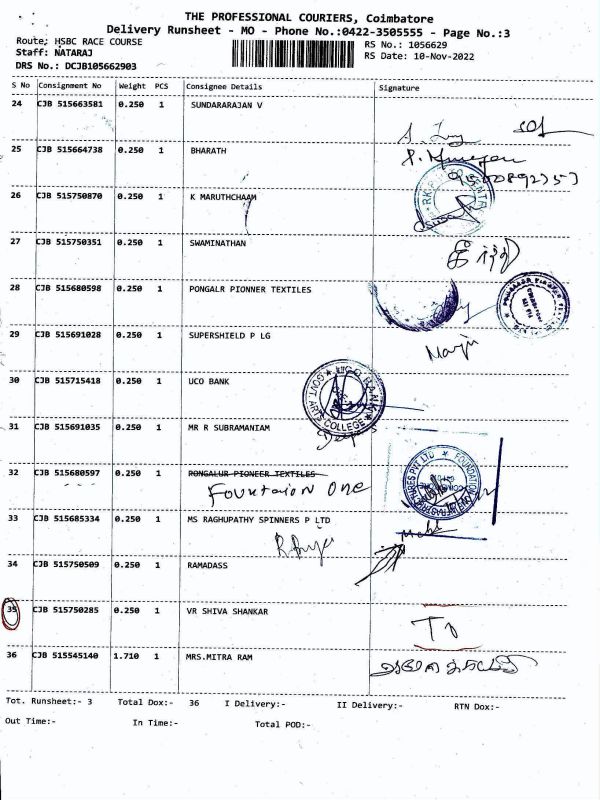 THE PROFESSIONAL COURIERS, Coimbatore
Delivery Runsheet - MO - Phone No.:0422-3505555 - Page No.:3
Route: HSBC RACE COURSE
RS No.: 1056629
Staff: NATARAJ
RS Date: 10-Nov-2022
DRS No.: DCJB105662903
S No Consignment No Weight PCS Consignee Details Signature
24 CJB 515663581 0.250 1 SUNDARARAJAN V
25 CJB 515664738 0.250 1 BHARATH
26 CJB 515750870 0.250 1 K MARUTHCHAAM
27 CJB 515750351 0.250 1 SWAMINATHAN
28 CJB 515680598 0.250 1 PONGALR PIONNER TEXTILES
29 CJB 515691028 0.250 1 SUPERSHIELD P LG
30 CJB 515715418 0.250 1 UCO BANK
UCO BANK GOVT ARTS COLLEGE
31 CJB 515691035 0.250 1 MR R SUBRAMANIAM
32 CJB 515680597 0.250 1 RONGALUR PIONEER TEXTILES
Fountaion One
33 CJB 515685334 0.250 1 MS RAGHUPATHY SPINNERS P LTD
34 CJB 515750509 0.250 1 RAMADASS
35 CJB 515750285 0.250 1 VR SHIVA SHANKAR
36 CJB 515545140 1.710 1 MRS.MITRA RAM
Tot. Runsheet:- 3 Total Dox:- 36 I Delivery:- II Delivery:- RTN Dox:-
Out Time:- In Time:- Total POD:-